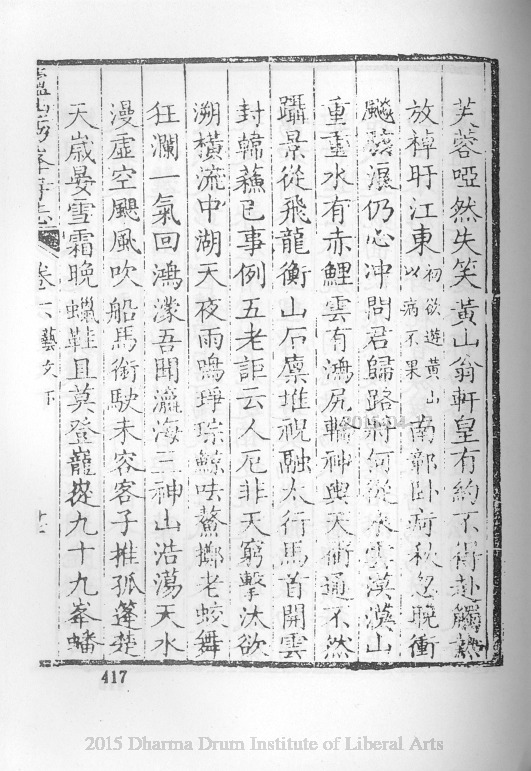 芙蓉啞然失笑黃山翁軒皇有約不得赴觸熱
放棹盱江東初欲遊黃山以病不果南鄣臥痾秋忽晚衝
飈濤瀑仍心沖問君歸路將何從水雲漠漠山
重重水有赤鯉雲有鴻尻輪神輿天衢通不然
躡景從飛龍衡山石廩堆祝融太行馬首開雲
封韓蘇已事例五老詎云人厄非天窮擊汰欲
溯橫流中湖天夜雨鳴琤琮鯨呿鰲擲老蛟舞
狂瀾一氣回鴻濛吾聞瀛海三神山浩蕩天水
漫虛空颶風吹船馬銜駛未容客子推孤篷楚
天歲晏雪霜晚蠟鞋且莫登巃嵸九十九峯蟠
廬山秀峯寺志 卷六 藝文下 十二
417
2015 Dharma Drum Institute of Liberal Arts